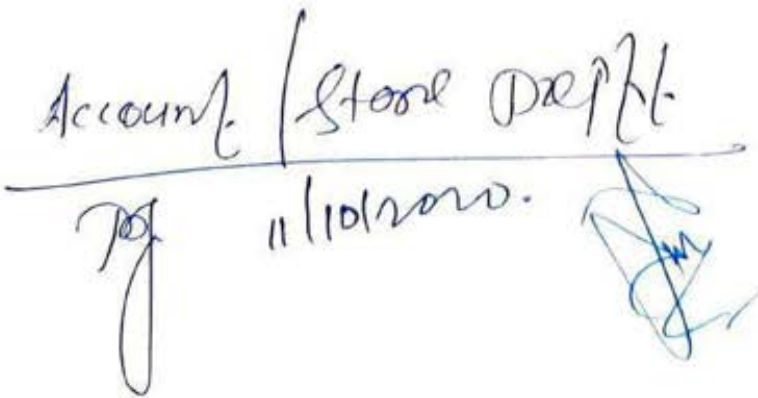 Account / Store Deptt
11/10/2020.